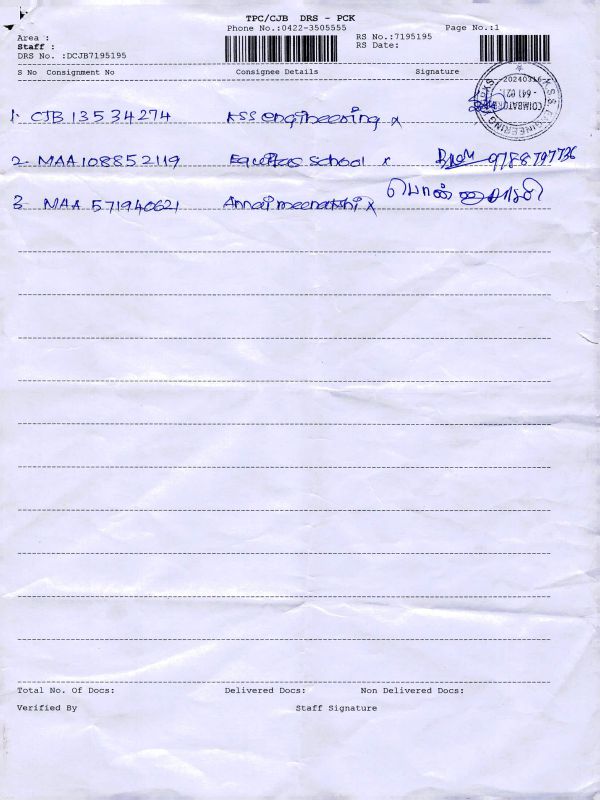 TPC/CJB DRS - PCK
Phone No.:0422-3505555
Page No.:1
Area :
RS No.:7195195
Staff :
RS Date:
DRS No. :DCJB7195195
S No Consignment No Consignee Details Signature
20240316
COIMBATORE
- 641 021.
1. CJB 13534274 KSS engineering x
2. MAA 108852119 Equitas School x 9788797736
3 MAA 571940621 Annai meenatshi x
Total No. Of Docs: Delivered Docs: Non Delivered Docs:
Verified By Staff Signature